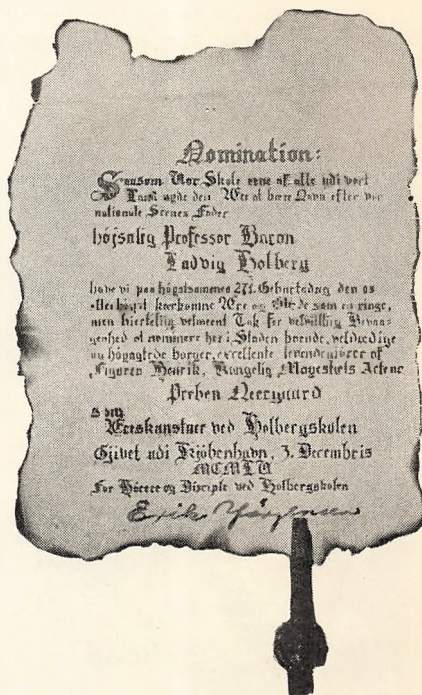 Nomination:
Saasom Vor Skole eene af alle udi vort
Land nyde den Ære at bære Navn efter vor
nationale Scenes Fader
højsalig Professor Baron
Ludvig Holberg
have vi paa højstsammes 271. Geburtsdag den os
allerhøyst kærkomne Ære og Glæde som en ringe,
men hiertelig velmeent Tak for velvillig Bevaa-
genhed at nominere her i Staden boende, velædige
og høyagtede borger, excellente levendegiører af
Figuren Henrik, Kongelig Mayestæts Acteur
Preben Neergaard
som
Æreskunstner ved Holbergskolen
Gjivet udi Kjöbenhavn, 3. Decembris
MCMLV
For Hörere og Disciple ved Holbergskolen
Erik Jörgensen